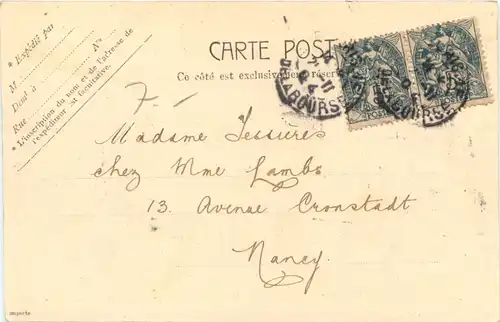 * Expédié par
M
Demt à
Rue
Nº
* L'inscription du nom et de l'adresse de
l'expéditeur est facultative.
CARTE POST
Ce côté est exclusivement réser
BOURSE
7 -
Madame Tessières
chez Mme Lambs
13. Avenue Cronstadt
Nancy.